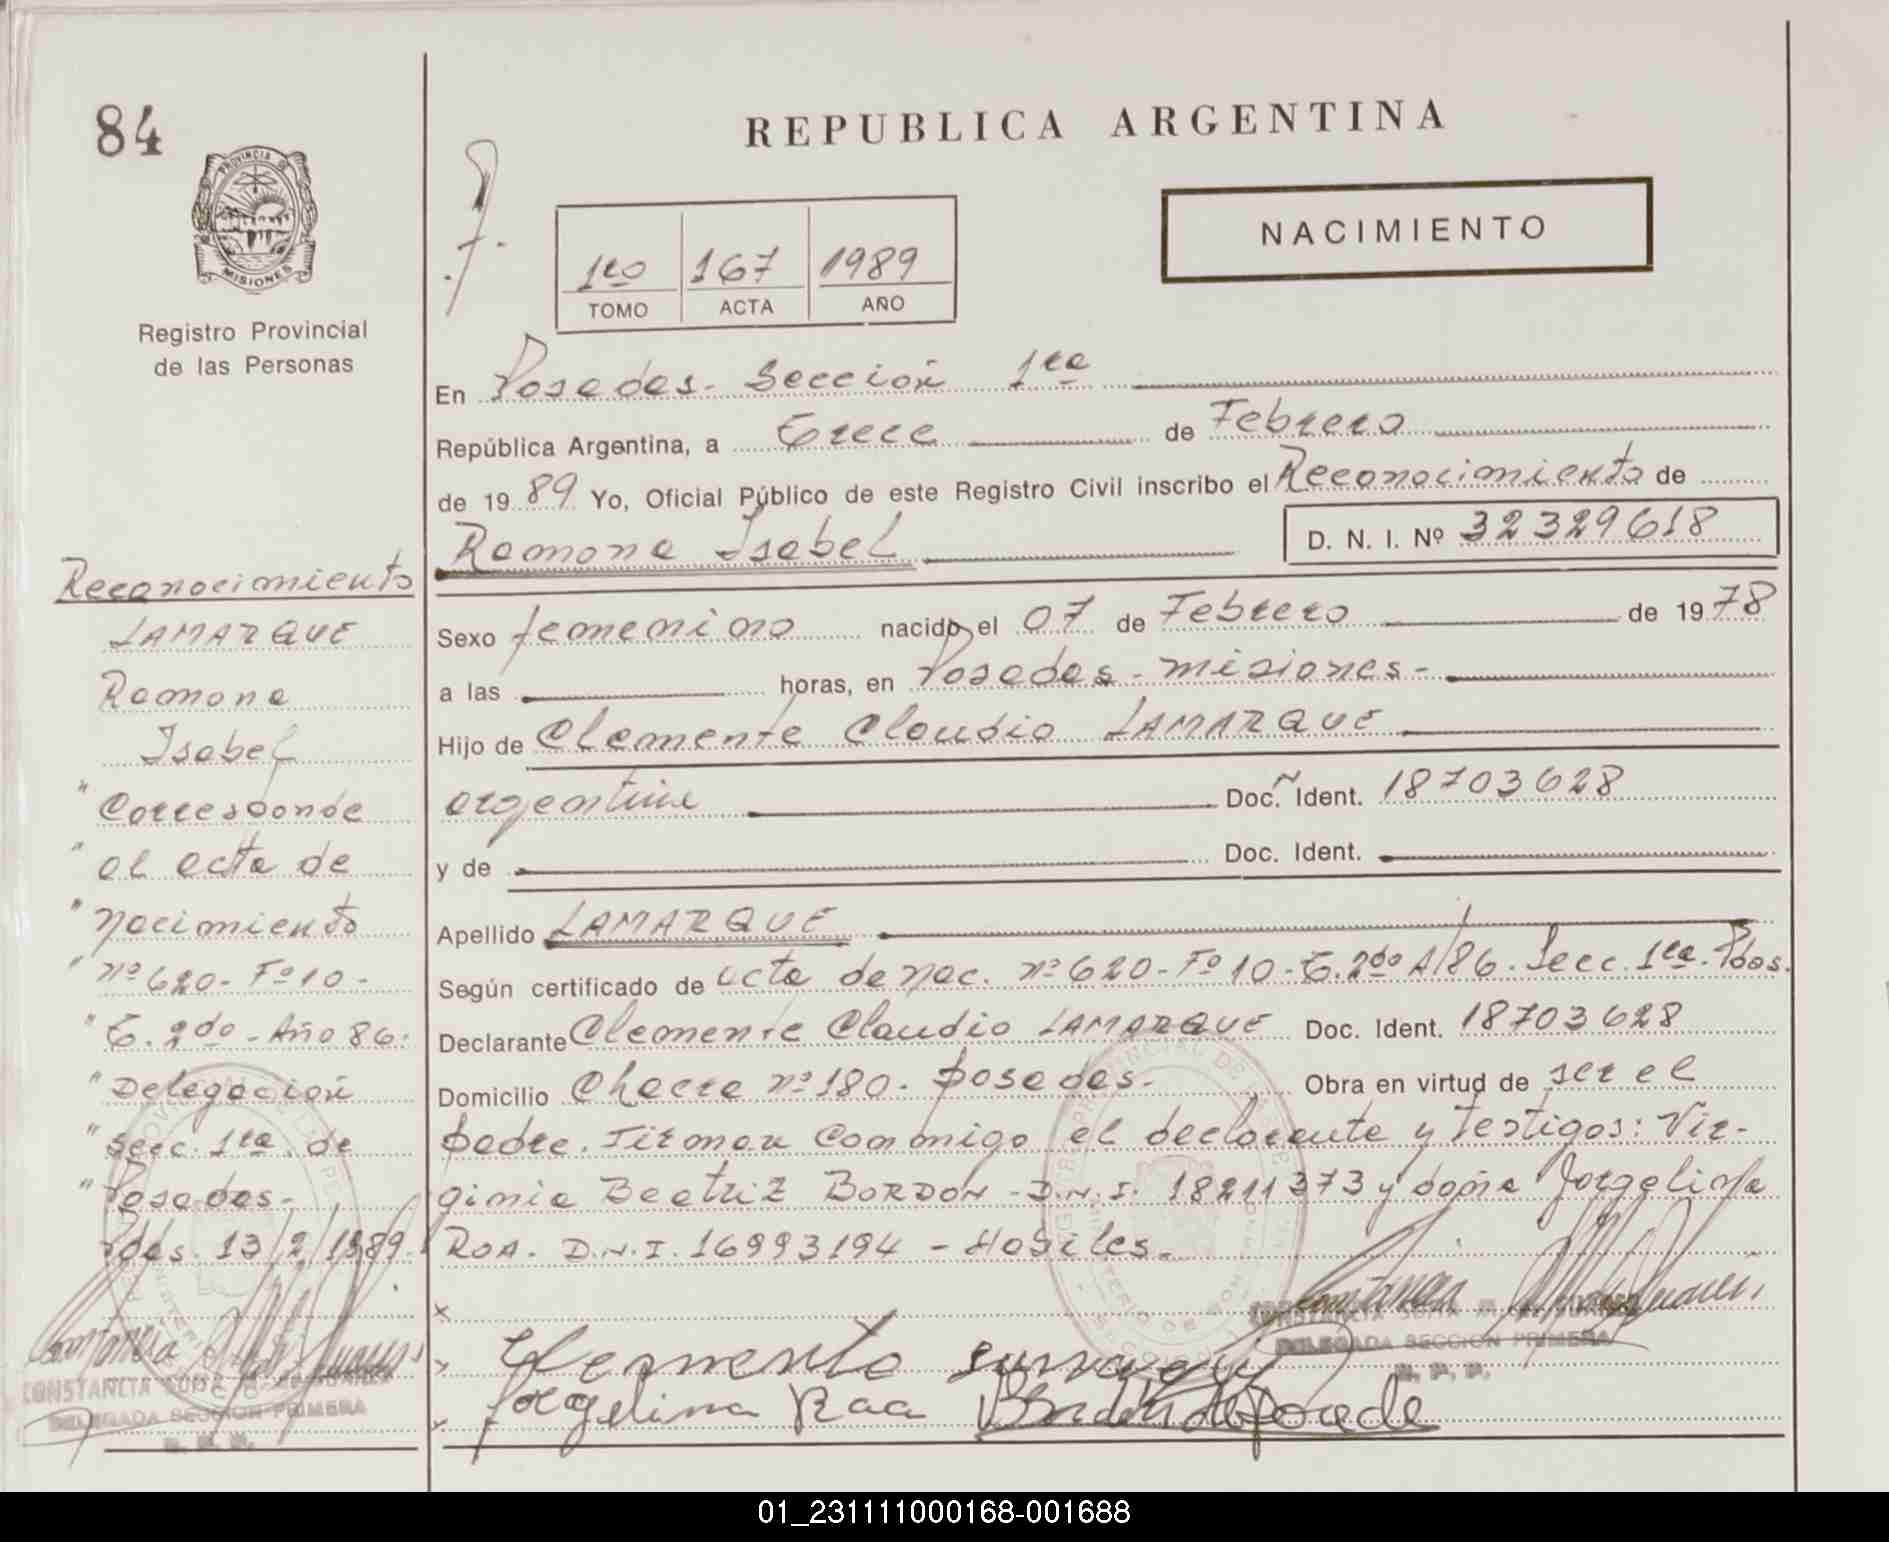 84
PROVINCIA DE
MISIONES
Registro Provincial
de las Personas
REPUBLICA ARGENTINA
NACIMIENTO
1ro 167 1989
TOMO ACTA AÑO
En Posadas - Sección 1ra
República Argentina, a Trece de Febrero
de 1989 Yo, Oficial Público de este Registro Civil inscribo el Reconocimiento de
Ramona Isabel D. N. I. Nº 32329618
Sexo femenino nacido el 07 de Febrero de 1978
a las horas, en Posadas - misiones -
Hijo de Clemente Claudio LAMARQUE
argentina Doc. Ident. 18703628
y de Doc. Ident.
Apellido LAMARQUE
Según certificado de acta de nac. nº 620 - Fº 10 - T. 2do A/86. Secc. 1ra. Pdas.
Declarante Clemente Claudio LAMARQUE Doc. Ident. 18703628
Domicilio Chacra nº 180. posadas. Obra en virtud de ser el
padre. Firman conmigo el declarante y testigos: Vir-
ginia Beatriz BORDON - D.N.I. 18211373 y doña Jorgelina
ROA. D.N.I. 16993194 - Habiles.
Jorgelina Roa
CONSTANCIA
DELEGADA SECCION PRIMERA
R. P. P.
Reconocimiento
LAMARQUE
Ramona
Isabel
" Corresponde
" al acta de
" nacimiento
" nº 620 - Fº 10 -
" T. 2do - Año 86.
" Delegación
" Secc. 1ra. de
" Posadas -
Pdas. 13/2/1989.
CONSTANCIA
DELEGADA SECCION PRIMERA
01_231111000168-001688